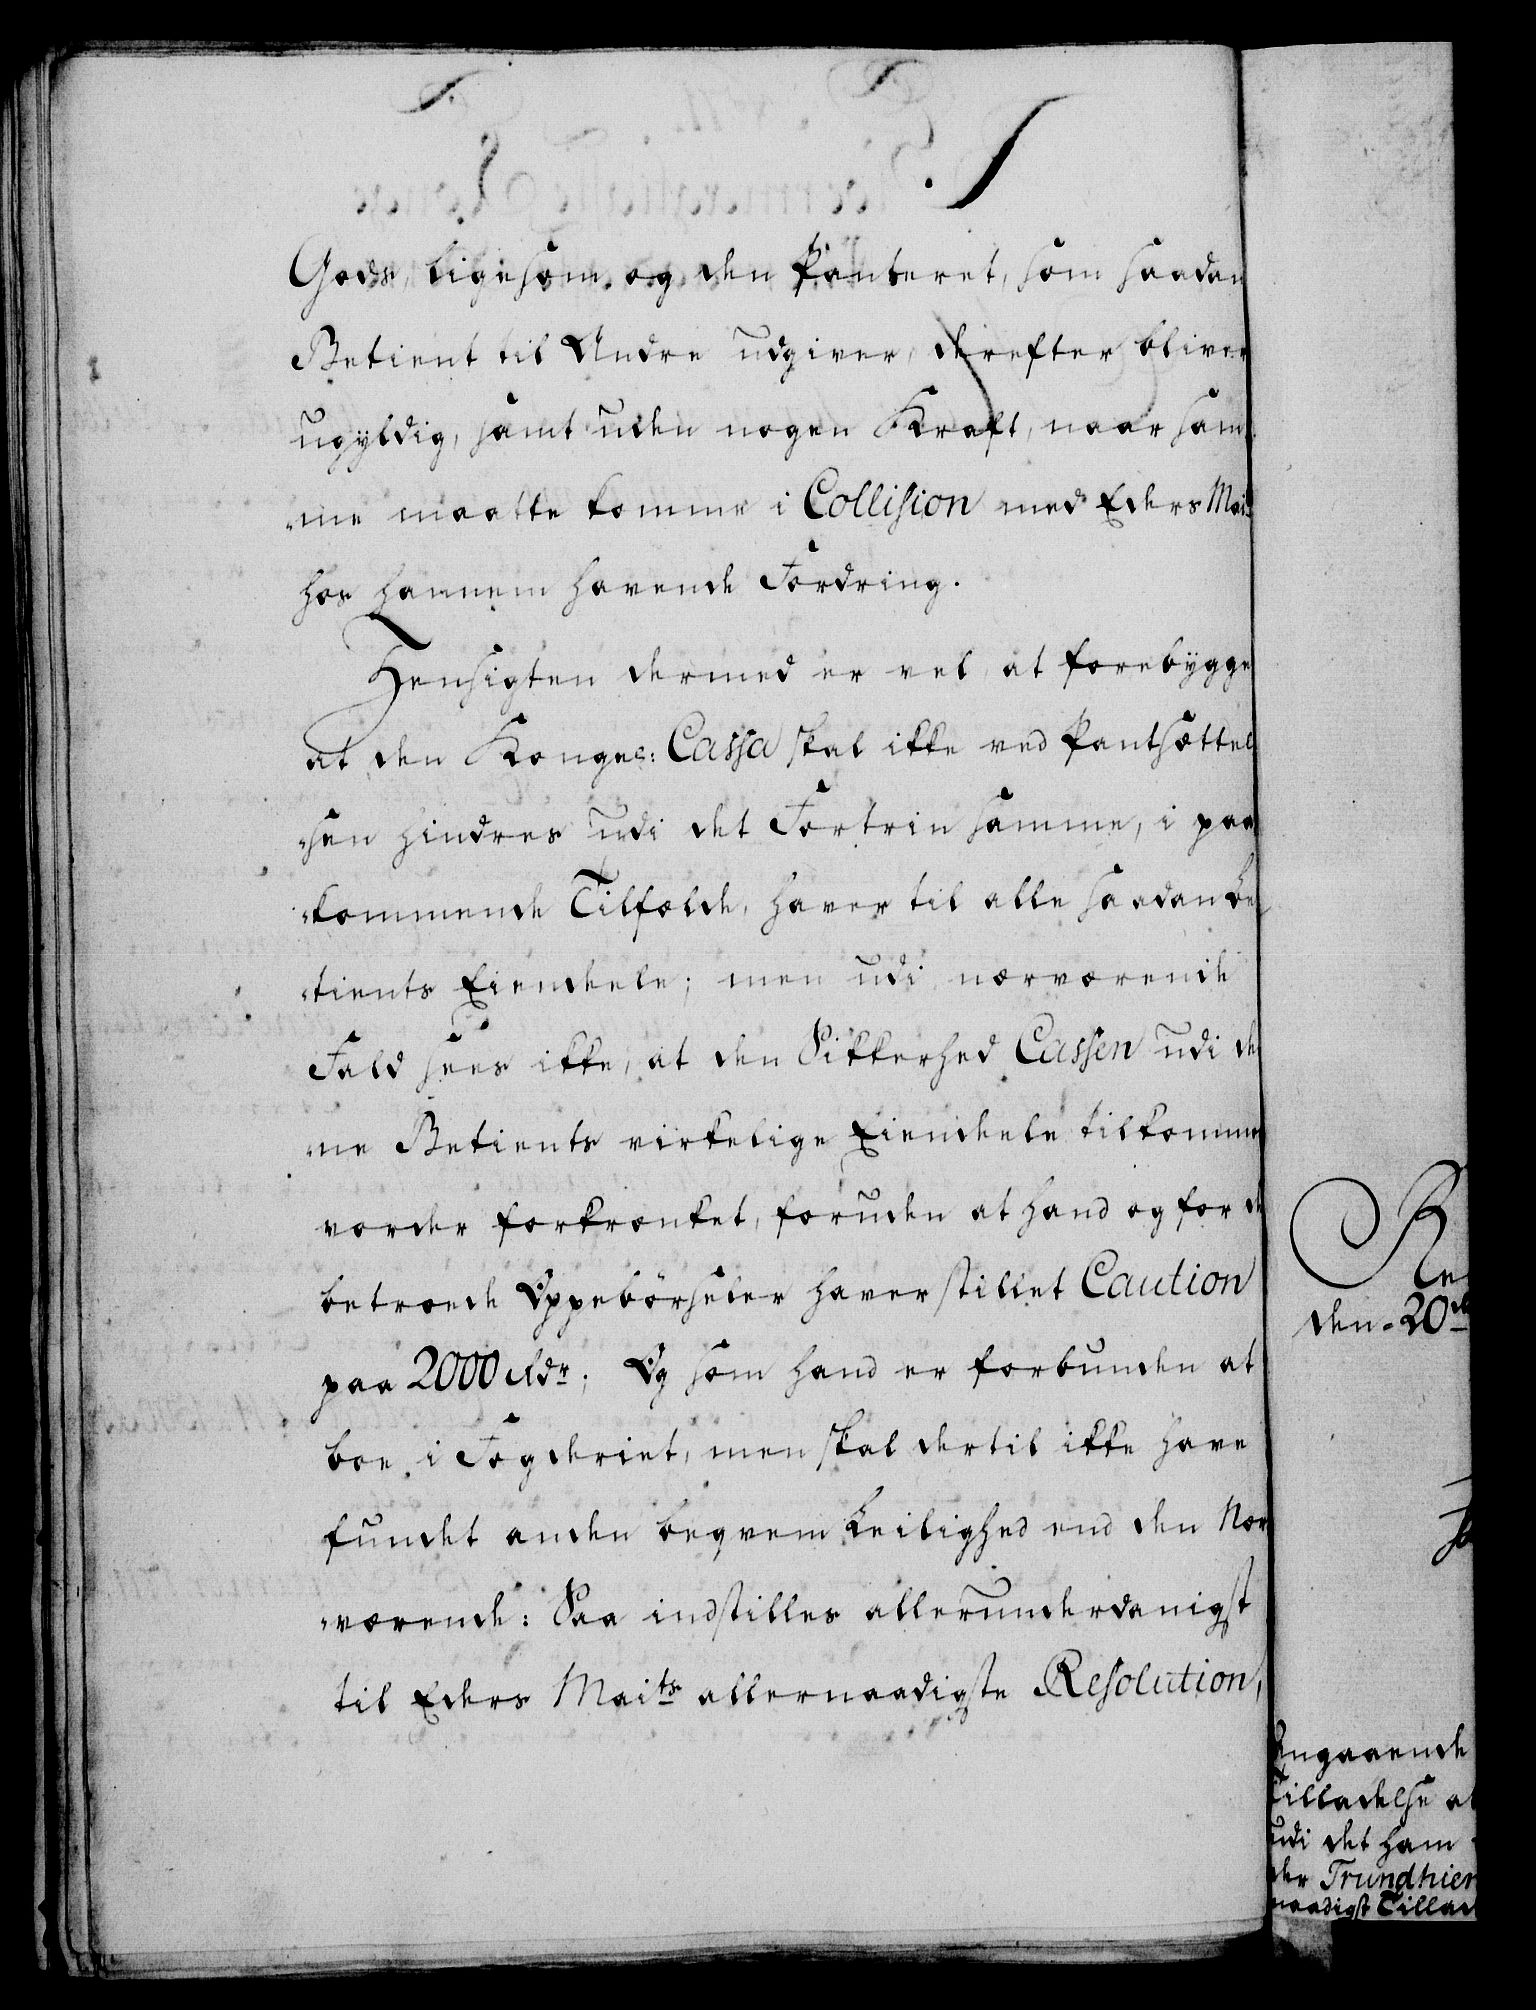 Gods, ligesom og den Panteret, som saadan
Betient til Andre udgiver, derefter bliver
ugyldig, samt uden nogen Kraft, naar sam¬
„me maatte komme i Collision med Eders Mai
hos hannem havende Fordring.
Hensigten dermed er vel, at forebygge
at den Kongel: Cassa skal ikke ved Pantsættel
„sen hindres udi det Fortrin samme, i paa
„kommende Tilfælde, haver til alle saadan Be
„tients Eiendeele; men udi nærværende
Fald sees ikke, at den Sikkerhed Cassen udi de
„ne Betients virkelige Eiendeele tilkomme
vorder forkrænket, foruden at hand og for de
betroede Oppebörseler haver stillet Caution
paa 2000 Rdr; Og som hand er forbunden at
boe i Fogderiet, men skal dertil ikke have
fundet anden beqvem Leilighed end den Nær
„værende: Saa indstilles allerunderdanigst
til Eders Maits allernaadigste Resolution,
den 20de
Angaaende
Tilladelse at
udi det ham
der Trundhiem
naadigst Tillad